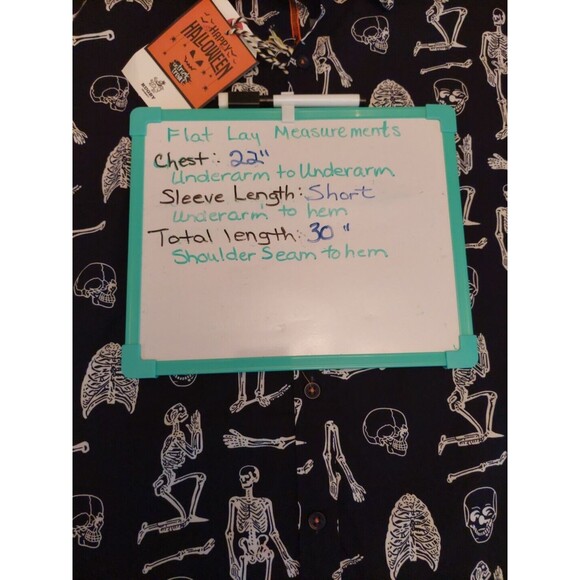 HAPPY
HALLOWEEN
Flat Lay Measurements
Chest: 22"
Underarm to Underarm
Sleeve Length: Short
Underarm to hem
Total length: 30"
Shoulder Seam to hem